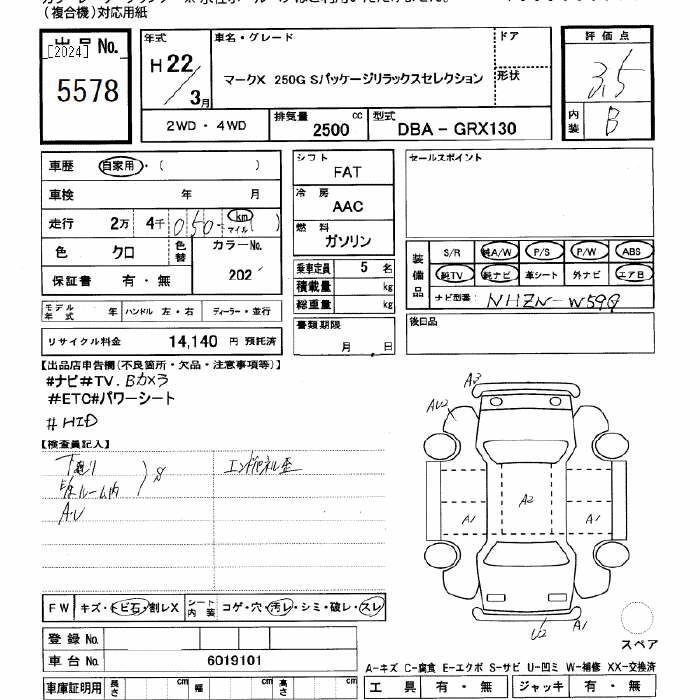 （複合機）対応用紙
出品No.
[2024]
5578
年式
H22/3月
車名・グレード
マークX 250G Sパッケージリラックスセレクション
ドア
形状
評価点
3.5
内装
B
2WD・4WD
排気量
2500 cc
型式
DBA - GRX130
車歴 自家用・( )
車検 年 月
走行 2万 4千 050 km マイル ( )
色 クロ
色替
カラーNo.
202
保証書 有・無
シフト
FAT
冷房
AAC
燃料
ガソリン
乗車定員 5 名
積載量 kg
総重量 kg
書類期限
月 日
セールスポイント
装備品
S/R 純A/W P/S P/W ABS
純TV 純ナビ 革シート 外ナビ エアB
ナビ型番 NHZN-W59G
後日品
モデル年式 年 ハンドル 左・右 ディーラー・並行
リサイクル料金 14,140 円 預託済
【出品店申告欄(不良箇所・欠品・注意事項等)】
#ナビ#TV.Bカメラ
#ETC#パワーシート
#HID
【検査員記入】
下廻り
S
ルーム内
エンドパネル歪
A・U
A3
AU2
A2
A1
A1
U2
A1
FW キズ・トビ石・割レX
シート内装
コゲ・穴・汚レ・シミ・破レ・スレ
スペア
登録No.
車台No. 6019101
A-キズ C-腐食 E-エクボ S-サビ U-凹ミ W-補修 XX-交換済
車庫証明用 長さ cm 幅 cm 高さ cm
工具 有・無 ジャッキ 有・無